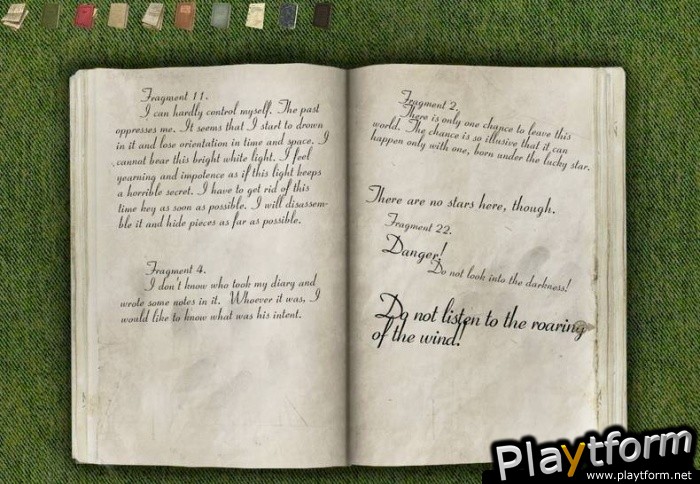 Fragment 11.
I can hardly control myself. The past
oppresses me. It seems that I start to drown
in it and lose orientation in time and space. I
cannot bear this bright white light. I feel
yearning and impotence as if this light keeps
a horrible secret. I have to get rid of this
time key as soon as possible. I will disassem-
ble it and hide pieces as far as possible.
Fragment 4.
I don't know who took my diary and
wrote some notes in it. Whoever it was, I
would like to know what was his intent.
Fragment 2.
There is only one chance to leave this
world. The chance is so illusive that it can
happen only with one, born under the lucky star.
There are no stars here, though.
Fragment 22.
Danger!
Do not look into the darkness!
Do not listen to the roaring
of the wind!
Playtform
www.playtform.net